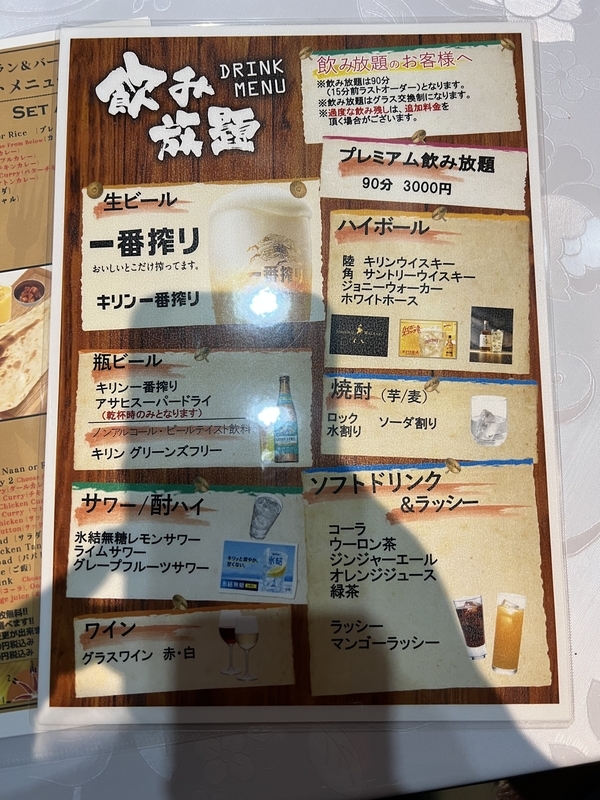 飲み
放題
DRINK
MENU
飲み放題のお客様へ
※飲み放題は90分
(15分前ラストオーダー)となります。
※飲み放題はグラス交換制になります。
※過度な飲み残しは、追加料金を
頂く場合がございます。
プレミアム飲み放題
90分 3000円
生ビール
一番搾り
おいしいとこだけ搾ってます。
キリン一番搾り
一番搾り
ハイボール
陸 キリンウイスキー
角 サントリーウイスキー
ジョニーウォーカー
ホワイトホース
瓶ビール
キリン一番搾り
アサヒスーパードライ
(乾杯時のみとなります)
ノンアルコール・ビールテイスト飲料
キリン グリーンズフリー
焼酎 (芋/麦)
ロック ソーダ割り
水割り
サワー/酎ハイ
氷結無糖レモンサワー
ライムサワー
グレープフルーツサワー
キリッと爽やか、
甘くない。
氷結無糖
氷結
ワイン
グラスワイン 赤・白
ソフトドリンク
&ラッシー
コーラ
ウーロン茶
ジンジャーエール
オレンジジュース
緑茶
ラッシー
マンゴーラッシー
SET